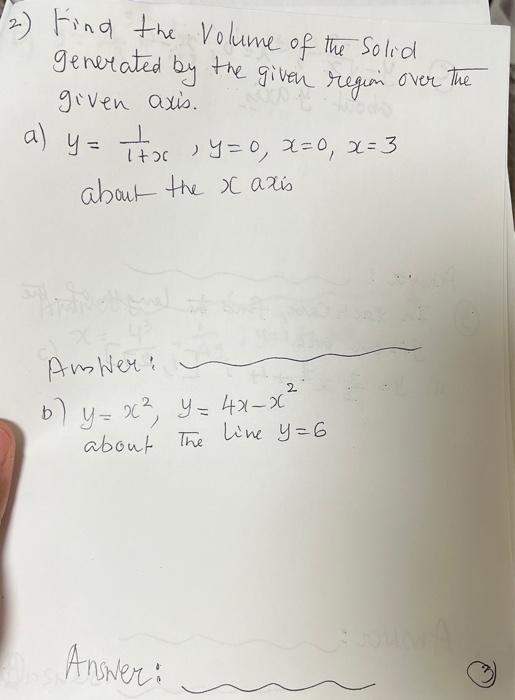 2) Find the Volume of the Solid
generated by the given region over the
given axis.
a) y = 1/(1+x) , y=0, x=0, x=3
about the x axis
Answer:
b) y = x², y = 4x-x²
about The line y=6
Answer:
3